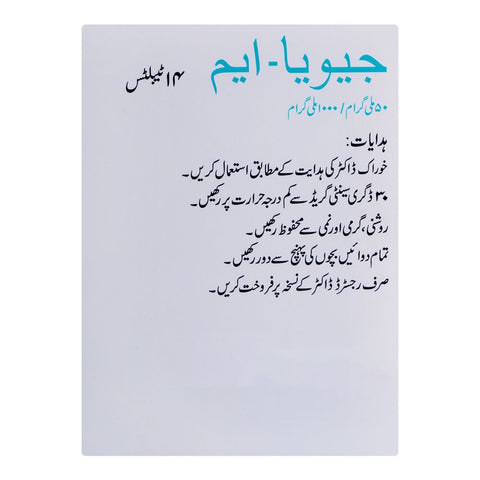 جیویا-ایم ۱۴ ٹیبلٹس
۵۰ ملی گرام/۱۰۰۰ ملی گرام
ہدایات:
خوراک ڈاکٹر کی ہدایت کے مطابق استعمال کریں۔
۳۰ ڈگری سینٹی گریڈ سے کم درجہ حرارت پر رکھیں۔
روشنی، گرمی اور نمی سے محفوظ رکھیں۔
تمام دوائیں بچوں کی پہنچ سے دور رکھیں۔
صرف رجسٹرڈ ڈاکٹر کے نسخہ پر فروخت کریں۔